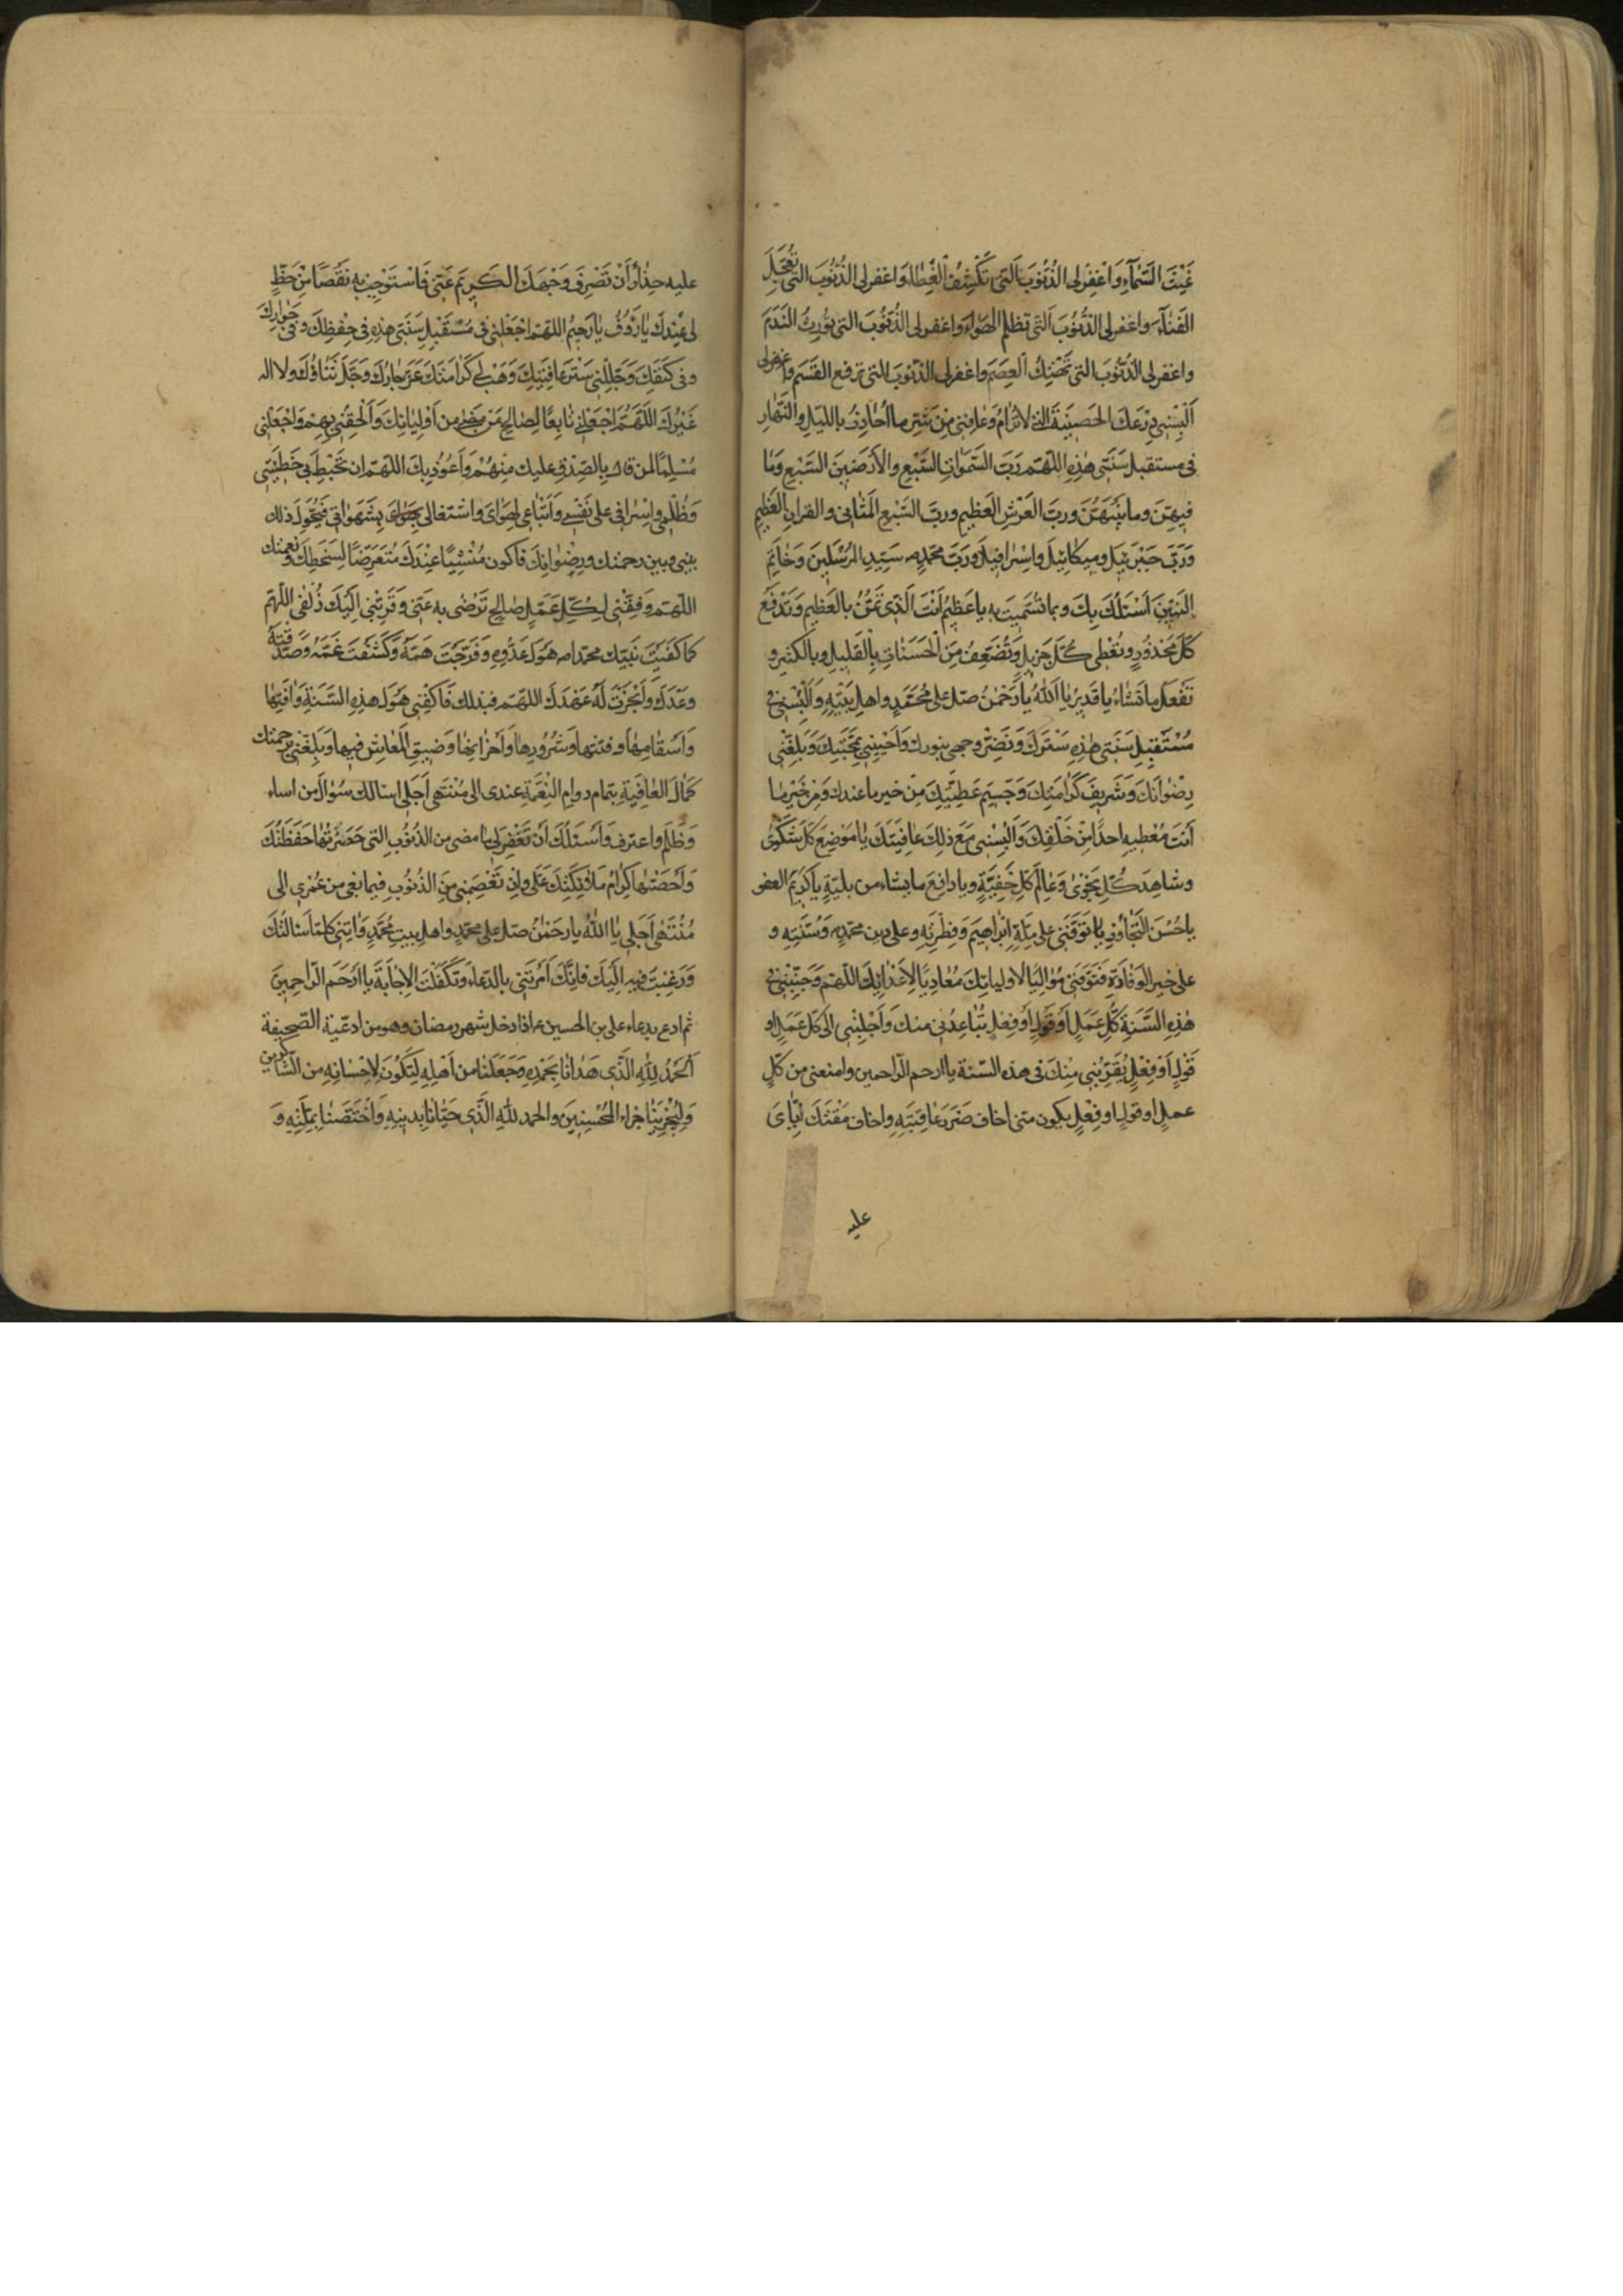 غَيْثَ السَّمَآءِ وَاغْفِرْلِى الذُّنُوبَ الَّتى تَكْشِفُ الْغِطٰاءَ وَاغفرلى الذُّنُوبَ التى تُعَجِّلُ
الفَنٰآءَ واغفرلى الذُّنُوبَ الَّتى تظلم الهَوٰاءَ واغفرلى الذُّنُوبَ التى تُورِثُ النَّدَمَ
واغفرلى الذُّنُوبَ التى تَهْتِكُ العِصَمَ واغفرلى الذّنوبَ التى ترفع القَسَم واغفرلى
اَلْبِسْنِى دِرْعَكَ الحَصِينَةَ التى لاتُرٰامُ وَعٰافِنى مِنْ شَرِّ ما اُحٰاذِرُ بالليلِ والنَّهٰارِ
فى مستقبل سَنَتى هٰذِهِ اللّهمّ رَبَّ السَّمٰوٰاتِ السَّبْعِ والاَرَضينَ السَّبْعِ وَمٰا
فيهِنّ وما بَيْنَهُنَّ وربّ العَرْشِ العَظِيمِ وربّ السَّبْعِ المَثٰانِى والقرانِ العَظِيمِ
وَرَبَّ جَبْرَئيلَ وميكٰائيلَ واِسْرٰافيلَ وَرَبَّ محمّدٍ ص سَيّدِ المُرْسَلينَ وَخٰاتَمِ
النبيّنَ اَسْئَلُكَ بِكَ وبما تسَمّيتَ به يا عَظيمُ اَنْتَ الَّذى تَمُنُّ بالعَظيمِ وَتَدْفَعُ
كُلَّ مَحْذُورٍ وتُعْطى كُلَّ جَزيلٍ وَتُضَعِّفُ مِنَ الْحَسَنٰاتِ بِالْقَليلِ وبالكَثيرِ و
تَفْعَلُ ما تَشٰاءُ يا قَديرُ يا اَللّٰهُ يا رَحْمٰنُ صلّ على مُحَمّدٍ واهل بَيْتِهِ وَاَلْبِسْنِى فى
مُسْتَقْبِلِ سَنَتى هٰذِهِ سَتْرَكَ وَنَضِّرْ وجهى بنورك وَاَحْيِينى بمحَبَّتِكَ وَبَلِّغْنى
رِضْوٰانَكَ وَشَريفَ كَرٰامَتِكَ وَجَسيمَ عَطِيَّتِكَ مِنْ خير ما عندك وَمِنْ خَيْرِ مٰا
اَنْتَ مُعْطيهِ احدًا مِنْ خَلْقِكَ وَاَلْبِسْنى مَعَ ذلِكَ عٰافِيَتَكَ يٰا مَوْضِعَ كُلّ شَكْوىٰ
وشاهِدَ كُلِّ نَجْوىٰ وَعٰالِمَ كُلّ خَفِيَّةٍ ويا دافِعَ ما يشاء من بليّةٍ يا كَريمَ العفو
يا حُسْنَ التَّجٰاوُزِ تَوَفَّنى عَلى مِلَّةِ اِبْراهيمَ وَفِطْرَتِهِ وعلى دين محمّدٍ وَسُنَّتِهِ و
على خيرِ الوَفٰاةِ فَتَوَفَّنى مُوٰاليًا لاوليائِكَ مُعٰادِيًا لاِعْدٰائِكَ اللّهمّ وَجَنِّبْنى فى
هٰذِهِ السَّنَةِ كُلَّ عَمَلٍ اَوْ قَولٍ اَوْ فِعلٍ يُبٰاعِدُنى منكَ وَاَجْلِبْنى الى كلّ عَمَلٍ او
قَوْلٍ اَوْ فِعْلٍ يُقَرِّبُنى مِنْكَ فى هذه السّنة يا ارحم الرّاحمين وامنعنى من كلّ
عملٍ او قولٍ او فِعْلٍ يكون منى اخاف ضَرَرَ عٰاقِبَتِهِ واخاف مَقْتَكَ اِيّٰاىَ
عليه
عليه حِذٰارَ اَنْ تَصْرِفَ وَجْهَكَ الكَريمَ عَنّى فَاسْتَوْجِبَ بِهِ نَقْصًا مِنْ حَظٍّ
لى عِنْدَكَ يٰا رَؤُفُ يٰا رَحيمُ اللهمّ اجْعَلْنى فى مُسْتَقْبِلِ سَنَتى هٰذِهِ فى حِفْظِكَ وفى جِوٰارِكَ
وفى كَنَفِكَ وَجَلِّلْنى سَتْرَ عٰافِيَتِكَ وَهَبْ لى كَرٰامَتَكَ عَزَّ جٰارُكَ وَجَلَّ ثَنٰاؤُكَ ولا اله
غَيْرُكَ اللّهُمَّ اجْعَلْنى تٰابِعًا لِصٰالِحِ مَنْ مَضىٰ من اَوْلِيٰائِكَ وَاَلْحِقْنى بِهِمْ وَاجْعَلْنى
مُسْلِمًا لمن قال بِالصِّدْقِ عليك مِنْهُمْ وَاَعُوذُ بِكَ اللّهمّ ان تُحْيطَ بى خَطيئَتى
وَظُلْمى واِسْرٰافى على نَفْسى وَاتّبٰاعى لِهَوٰاىَ واشتغالى بِشَهَوٰاتى فَيَحُولَ ذلك
بينى وبين رحمتك ورِضْوٰانِكَ فاكون مَنْسِيًّا عِنْدَكَ مُتَعَرِّضًا لِسَخَطِكَ ونعمتك
اللّهمّ وَفِّقْنى لِكُلّ عَمَلٍ صٰالِحٍ تَرْضى به عَنّى وَقَرِّبْنى اِلَيْكَ زُلْفى اللّهمّ
كما كَفَيْتَ نَبِيّك محمّدا ص هَوْلَ عَدُوِّهِ وَفَرَّجْتَ هَمَّهُ وَكَشَفْتَ غَمَّهُ وَصَدَقْتَهُ
وَعْدَكَ وَاَنْجَزْتَ لَهُ عَهْدَكَ اللّهمّ فبذلك فَاكْفِنى هَوْلَ هذِهِ السَّنَةِ وَاٰفٰتِهٰا
وَاَسْقٰامِهٰا وفتنتها وَشُرُورِهٰا وَاَحْزٰانِهٰا وَضيقِ المَعٰاشِ فيها وَبَلِّغْنى برحمتك
كَمٰالَ العٰافِيَةِ بتمام دوامِ النِّعْمَةِ عندى الى مُنْتَهى اَجَلى اسالك سُؤٰالَ من اساء
وَظَلَمَ واعترفَ وَاَسْئَلُكَ اَنْ تَغْفِرَ لى مٰا مضى من الذُنُوبِ التى حَصَرَتْهٰا حَفَظَتُكَ
وَاَحْصَتْهٰا كِرٰامُ مَلائِكَتِكَ عَلَىَّ واَنْ تَعْصِمَنى مِنَ الذُنُوبِ فيما بقى من عُمْرى الى
مُنْتَهٰى اَجَلى يٰا اللّٰهُ يا رَحْمٰنُ صلّ على محمّدٍ واهل بيتِ مُحَمَّدٍ وَاٰتِنى كلّما سَئالتُكَ
وَرَغِبْتُ فيه اِلَيْكَ فانّكَ اَمَرْتَنى بالدّعٰاءِ وَتَكَفَّلْتَ الاِجٰابَةَ يا ارَحَم الرّاحِمينَ
ثم ادع بدعاء على بن الحسين ع اذا دخل شهر رمضان وهو من ادعية الصّحيفة
اَلْحَمْدُ لِلّٰهِ الَّذى هَدٰانٰا بِحَمْدِهِ وَجَعَلَنٰا من اَهْلِهِ لِنَكُونَ لاِحْسٰانِهِ من الشّاكرين
وَلِيَجْزِيَنٰا جزاء المُحْسِنينَ والحمد للّٰهِ الَّذى حَبٰانٰا بدينِهِ وَاخْتَصَّنٰا بِمِلَّتِهِ وَ